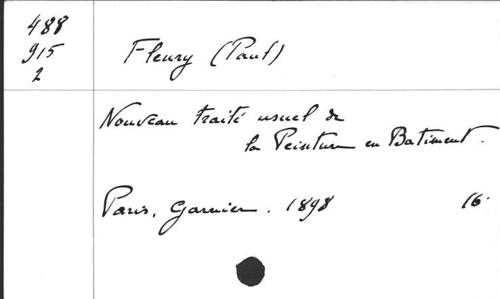 488
915
2
Fleury (Paul)
Nouveau traité usuel de
la Peinture en Batiment.
Paris, Garnier. 1898 16.